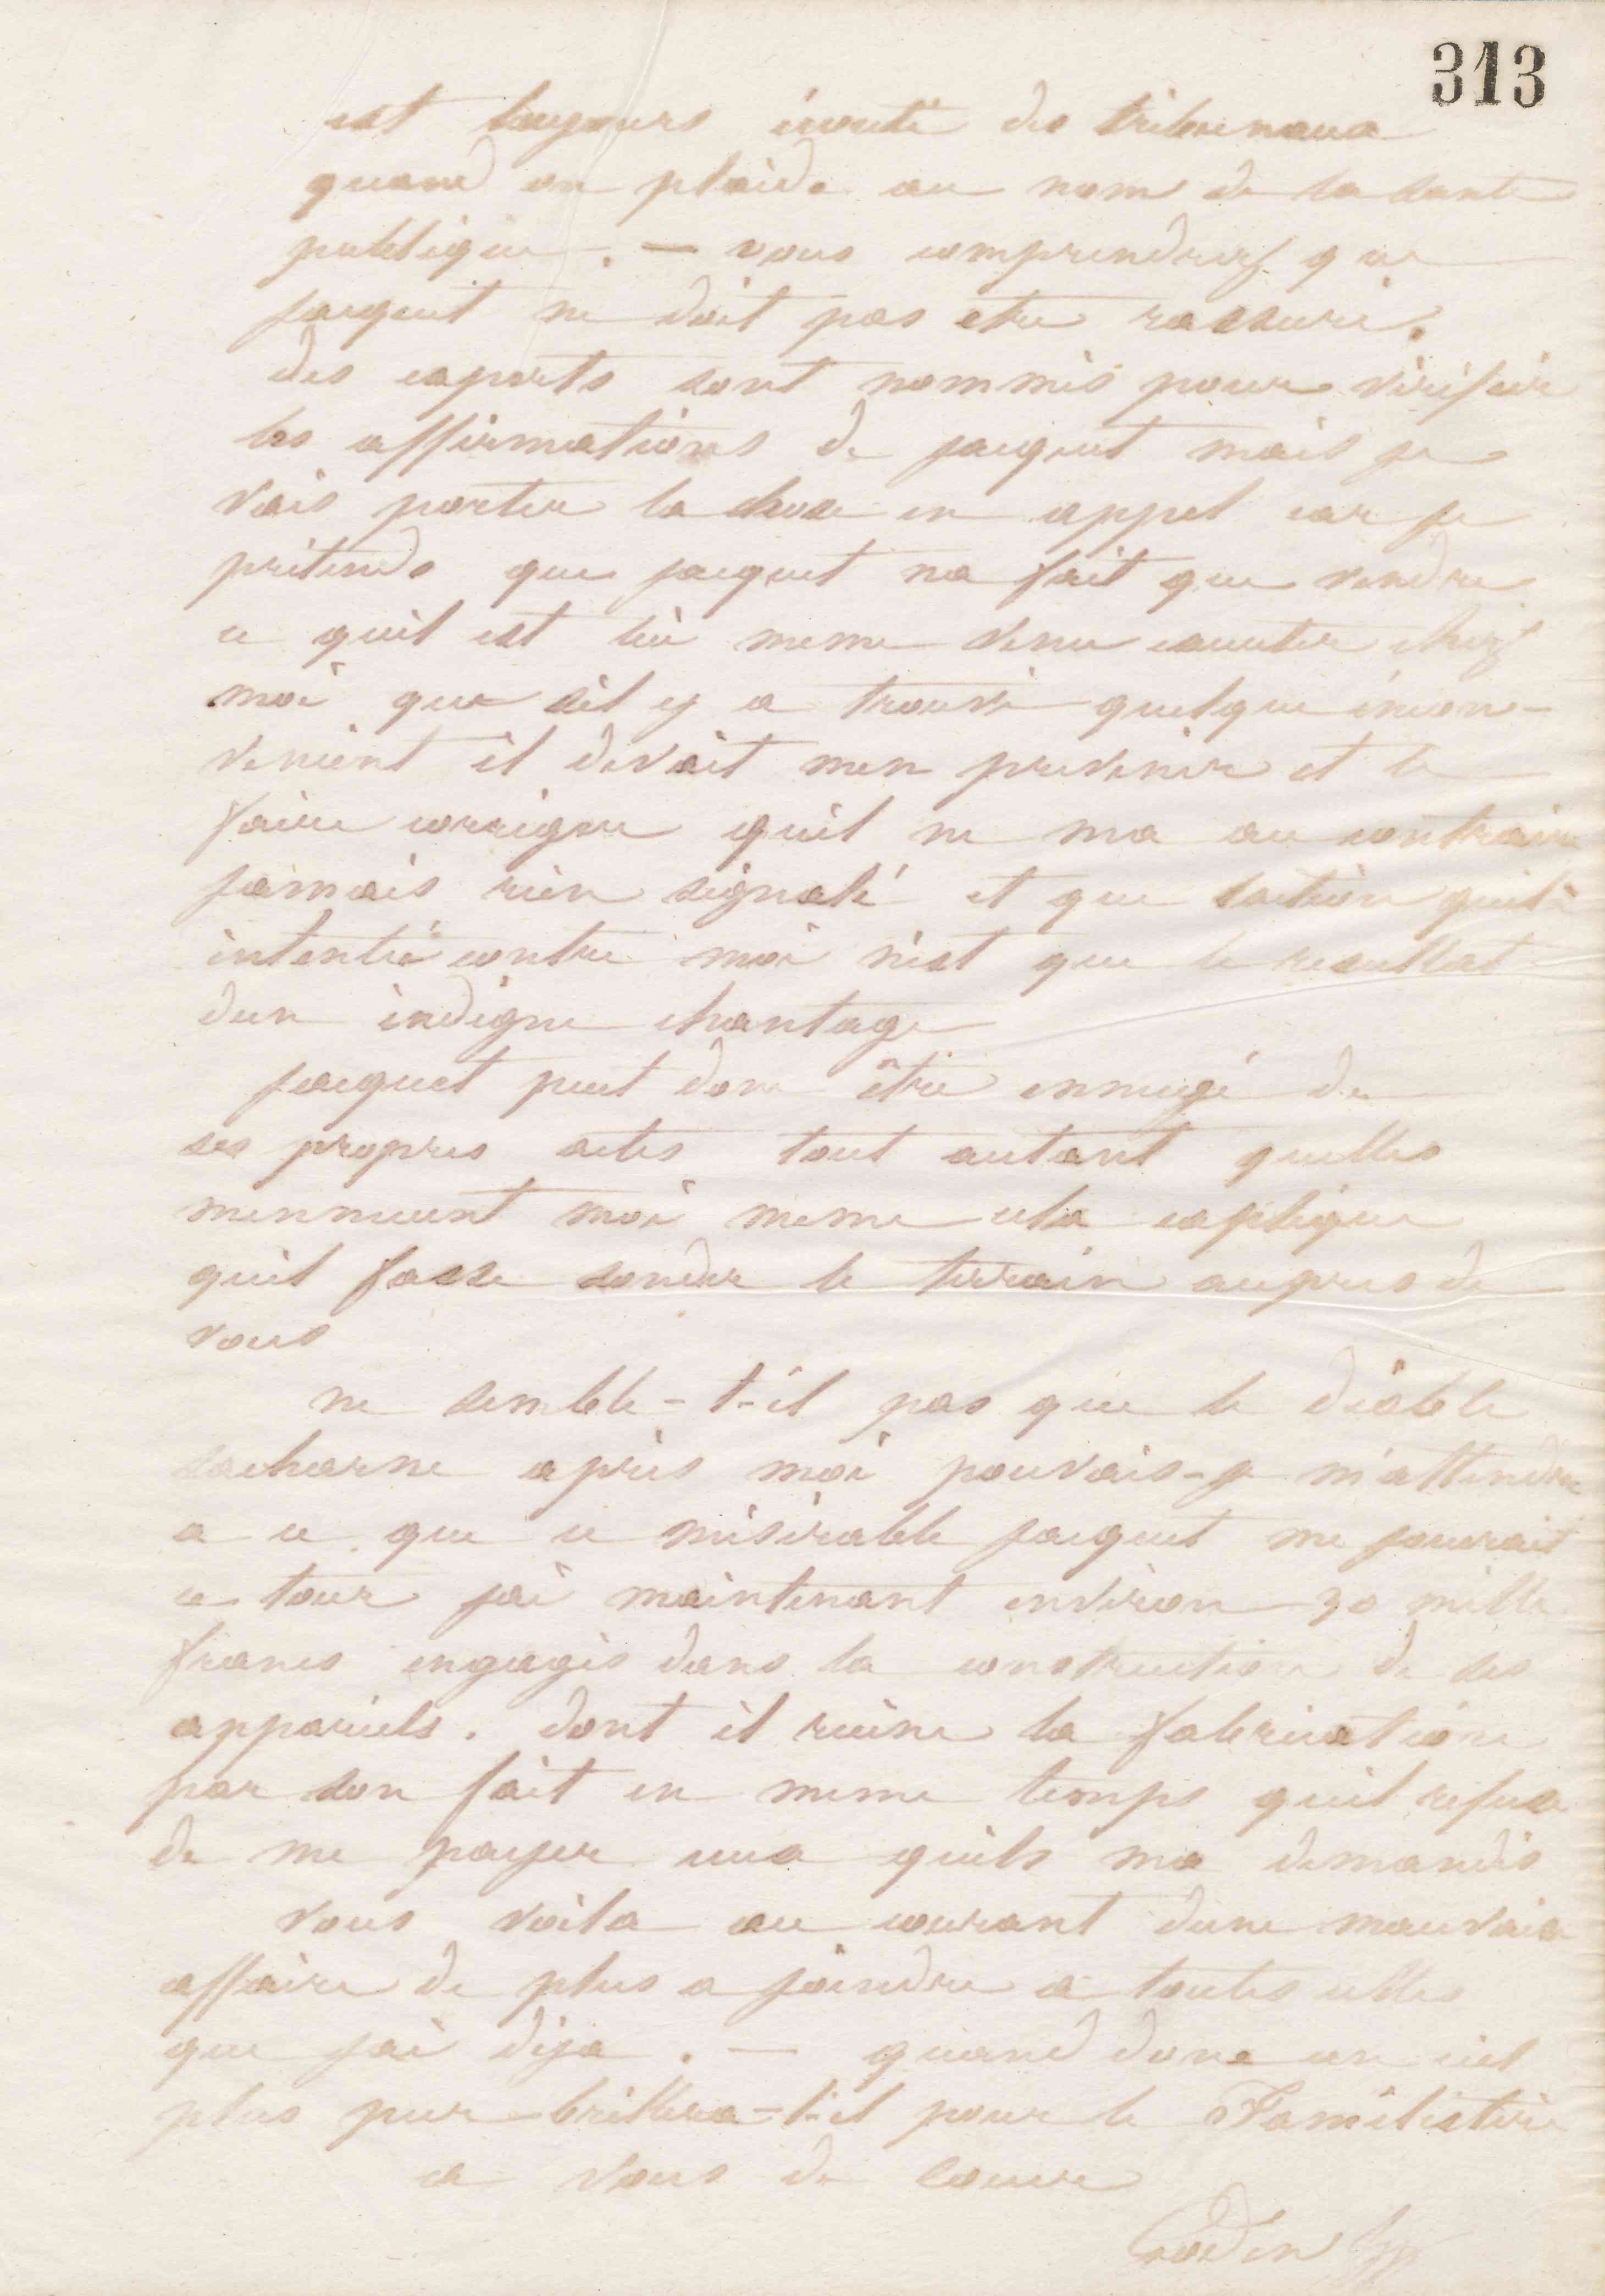 313
est toujours écouté des tribunaux
quand on plaide au nom de la santé
publique. — vous comprendrez que
jacquet ne doit pas etre rassuré.
des experts sont nommés pour vérifier
les affirmations de jacquet mais je
vais porter la chose en appel car je
prétends que jacquet na fait que vendre
ce quil est lui meme venu executer chez
moi que sil y a trouvé quelque incon-
venient il devait men prevenir et le
faire corriger quil ne ma au contraire
jamais rien signalé et que laction quil a
intentée contre moi n'est que le resultat
dun indigne chantage
jacquet peut donc être ennuyé de
ses propres actes tout autant quelles
mennuient moi meme cela explique
quil fasse sonder le terrain aupres de
vous
ne semble-t-il pas que le diable
sacharne après moi pouvais-je m'attendre
a ce que ce misérable jacquet me jouerait
ce tour jai maintenant environ 30 mille
francs engagés dans la construction de ses
appareils. dont il ruine la fabrication
par son fait en meme temps quil refuse
de me payer ceux quils ma demandés
vous voila au courant dune mauvaise
affaire de plus a joindre a toutes celles
que jai déja. — quand donc un ciel
plus pur brillera-t-il pour le Familistère
a vous de coeur
Godin